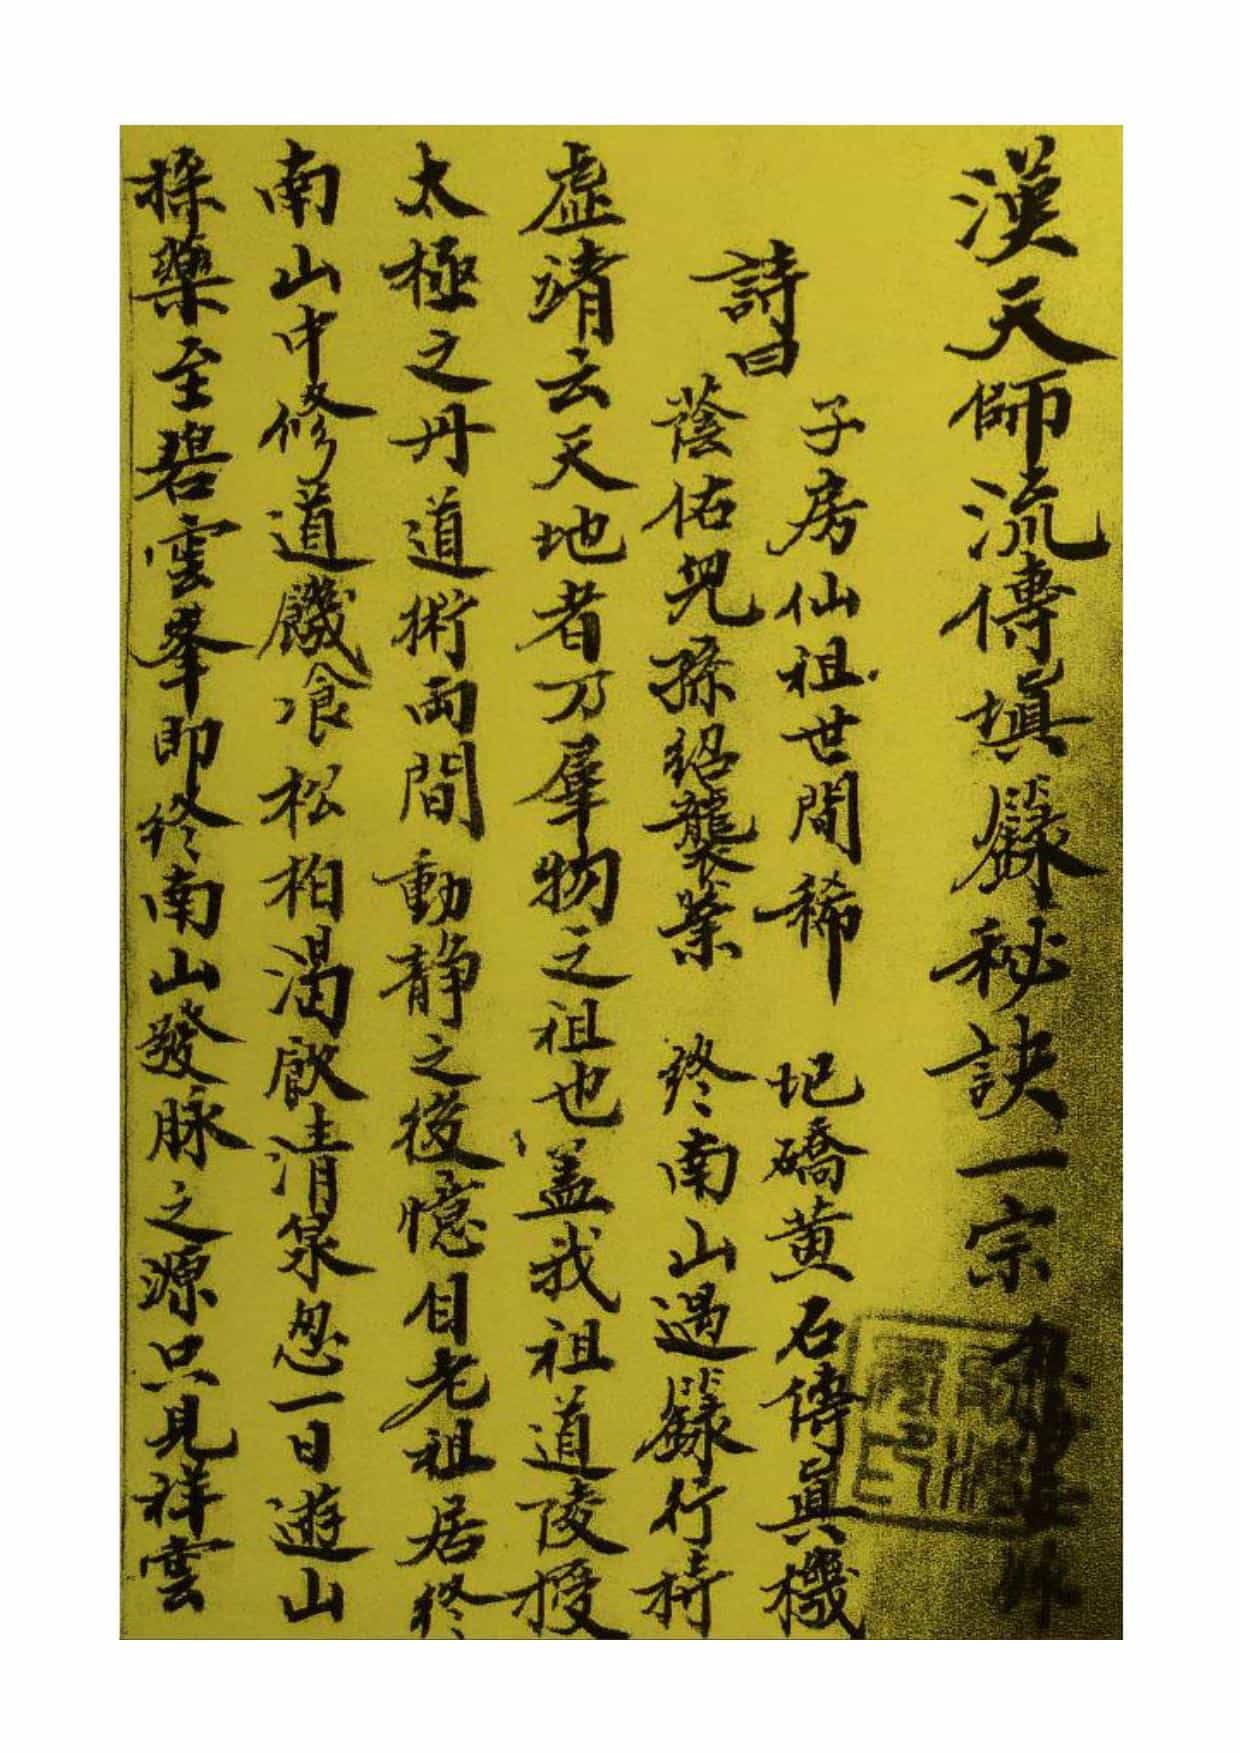 漢天師流傳填籙秘訣一宗
詩曰
子房仙祖世間稀 圯礄黄石傳眞機
蔭佑兒孫紹襲業 終南山遇籙行持
虛靖云天地者乃羣物之祖也盖我祖道陵授
太極之丹道術両間動静之後憶自老祖居終
南山中修道饑飡松柏渴飲清泉忽一日遊山
採藥至碧雲峯即終南山發脉之源只見祥雲